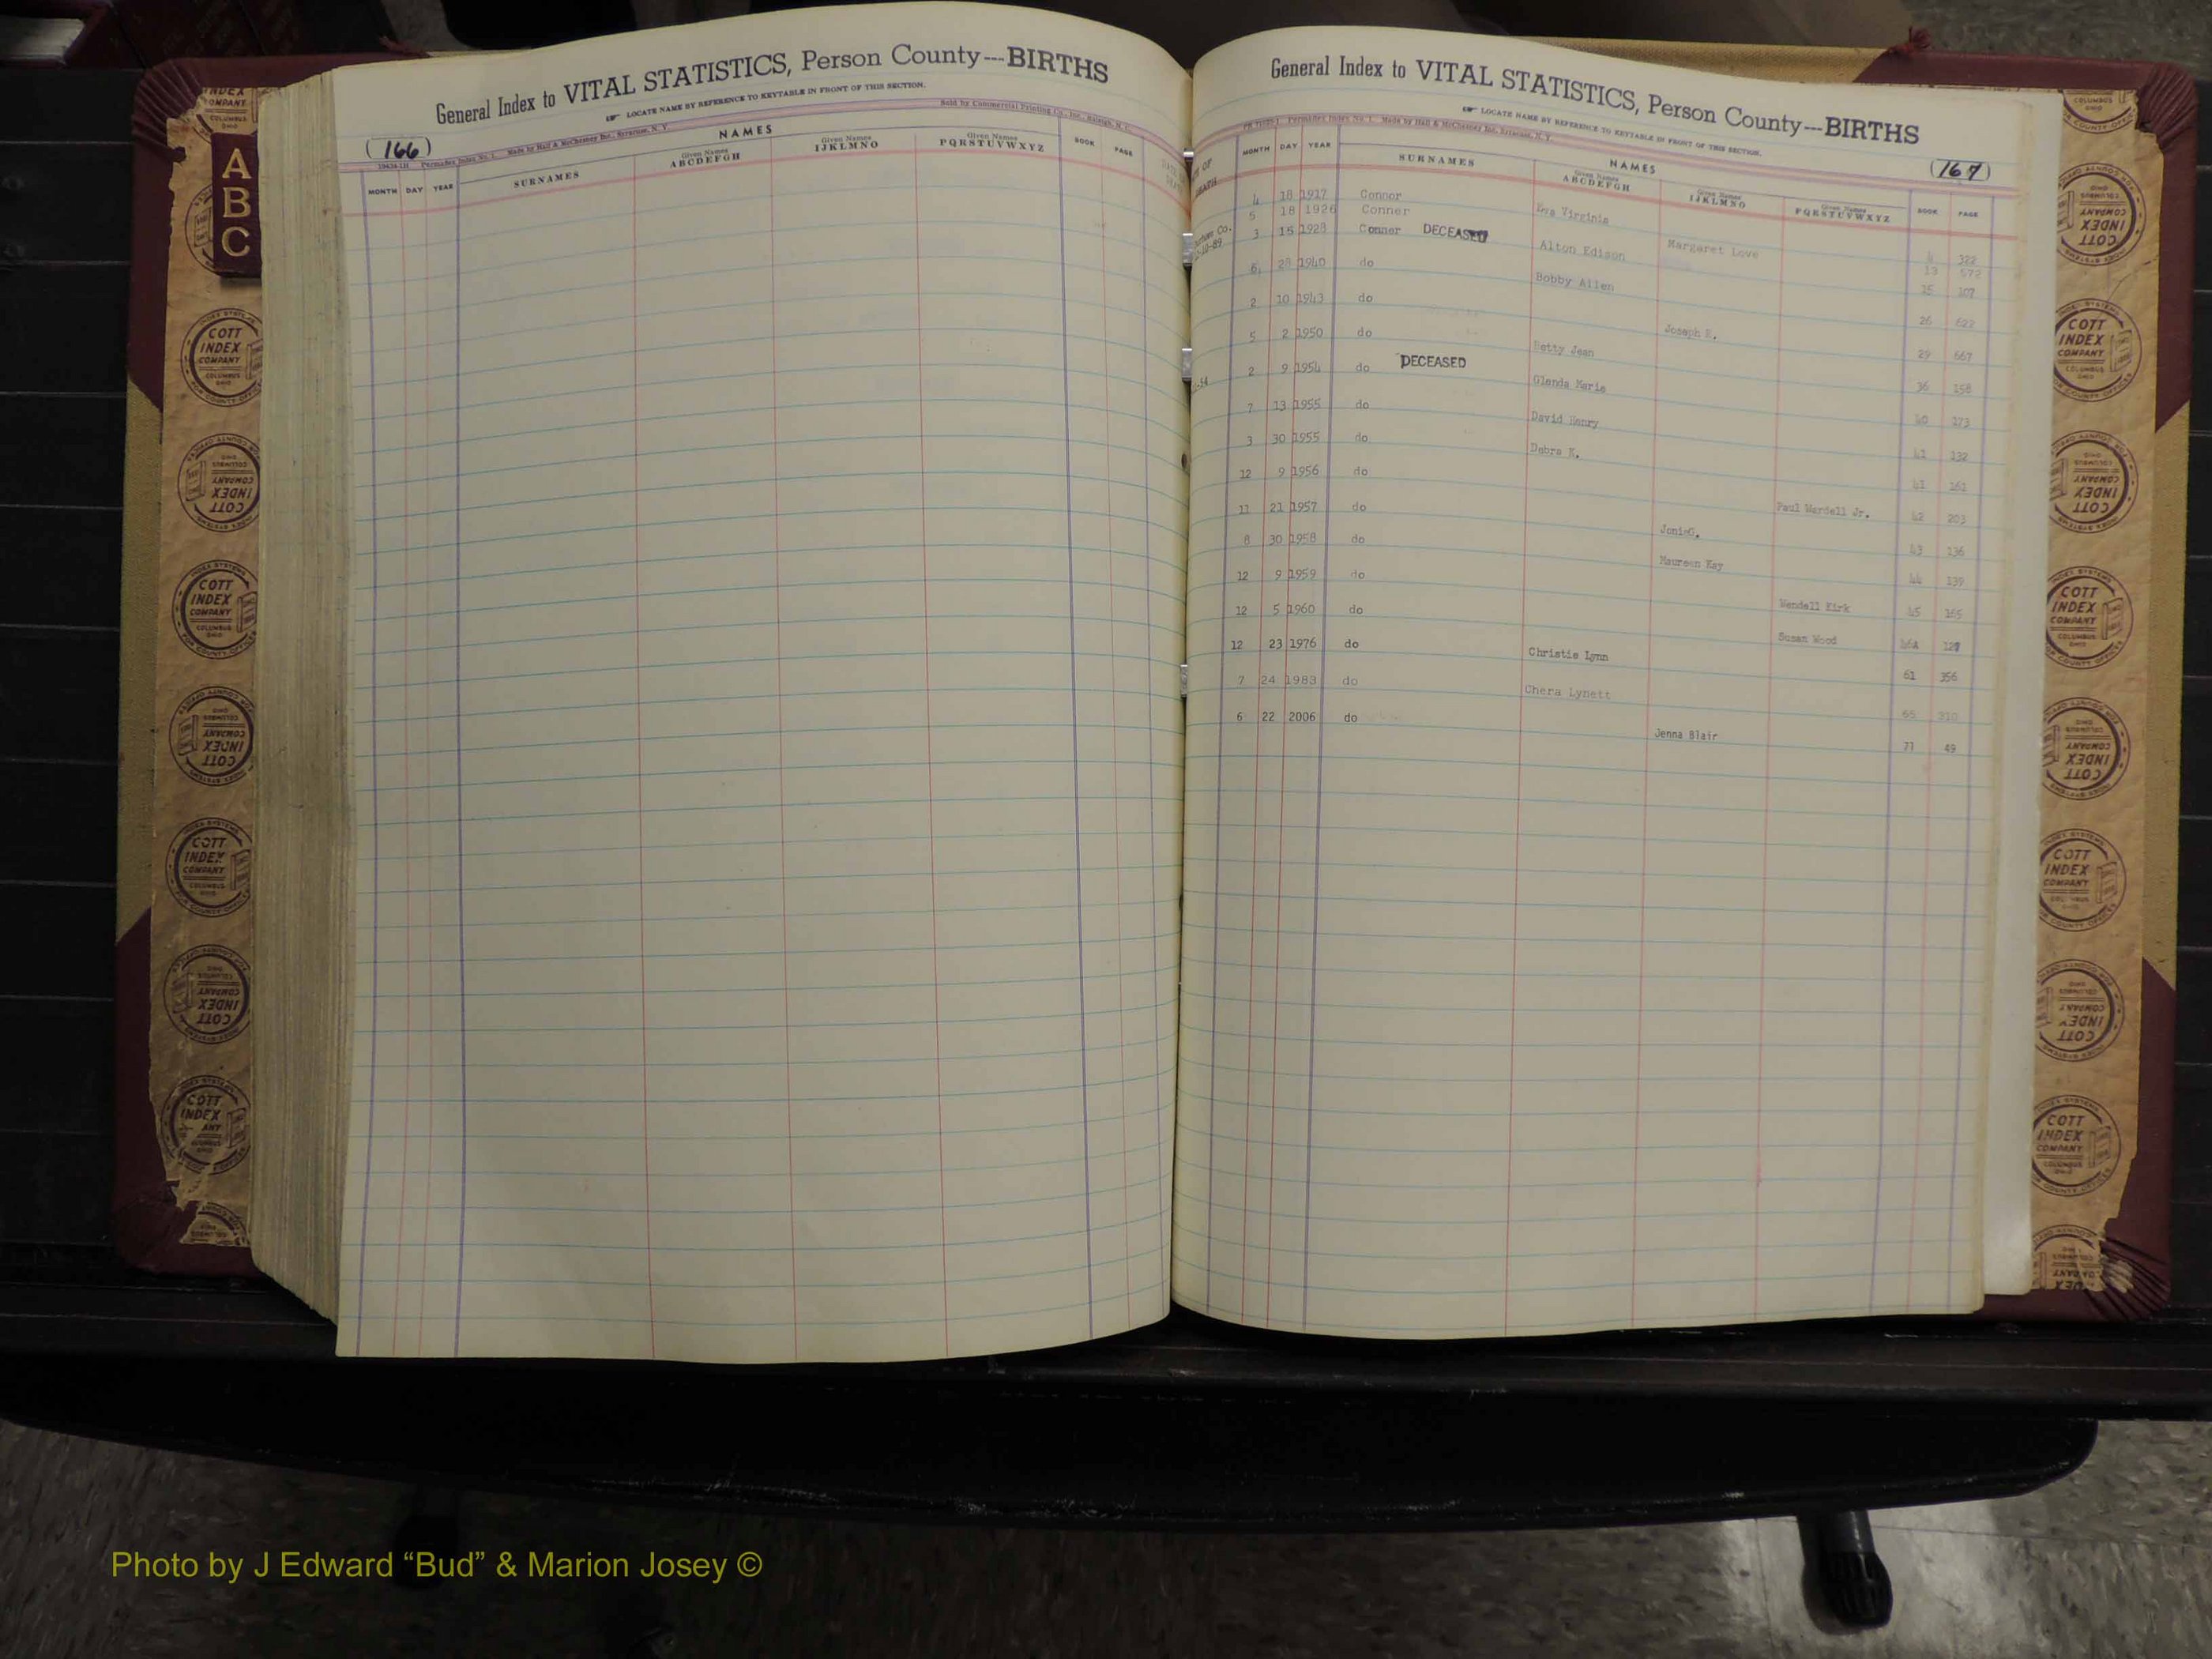 General Index to VITAL STATISTICS, Person County---BIRTHS
LOCATE NAME BY REFERENCE TO KEYTABLE IN FRONT OF THIS SECTION.
Sold by Commercial Printing Co., Inc., Raleigh, N. C.
(166)
Made by Hall & McChesney Inc., Syracuse, N. Y.
NAMES
MONTH DAY YEAR SURNAMES Given Names ABCDEFGH Given Names IJKLMNO Given Names PQRSTUVWXYZ BOOK PAGE
A
B
C
General Index to VITAL STATISTICS, Person County---BIRTHS
LOCATE NAME BY REFERENCE TO KEYTABLE IN FRONT OF THIS SECTION.
Made by Hall & McChesney Inc. Syracuse, N. Y.
(167)
NAMES
MONTH DAY YEAR SURNAMES Given Names ABCDEFGH Given Names IJKLMNO Given Names PQRSTUVWXYZ BOOK PAGE
4 18 1917 Connor Eva Virginia 4 322
5 18 1926 Conner Margaret Love 13 572
3 15 1928 Conner DECEASED Alton Edison 15 107
6 28 1940 do Bobby Allen 26 622
2 10 1943 do Joseph E. 29 667
5 2 1950 do Betty Jean 36 158
2 9 1954 do DECEASED Glenda Marie 40 173
7 13 1955 do David Henry 41 132
3 30 1955 do Debra K. 41 161
12 9 1956 do Paul Wardell Jr. 42 203
11 21 1957 do Jonie G. 43 136
8 30 1958 do Maureen Kay 44 139
12 9 1959 do Wendell Kirk 45 165
12 5 1960 do Susan Wood 46A 127
12 23 1976 do Christie Lynn 61 356
7 24 1983 do Chera Lynett 65 310
6 22 2006 do Jenna Blair 71 49
COTT
INDEX
COMPANY
COLUMBUS
OHIO
Photo by J Edward “Bud” & Marion Josey ©